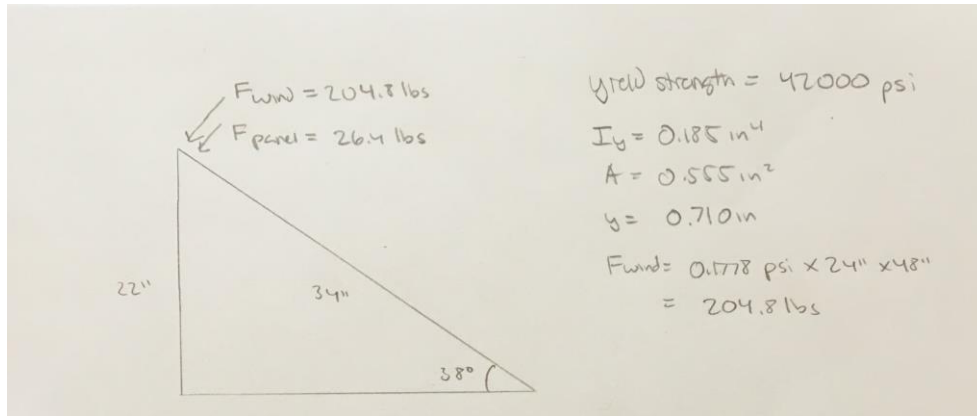 Fwind = 204.8 lbs
Fpanel = 26.4 lbs
22"
34"
38°
yield strength = 42000 psi
Iy = 0.185 in⁴
A = 0.555 in²
y = 0.710 in
Fwind = 0.1778 psi x 24" x 48"
= 204.8 lbs